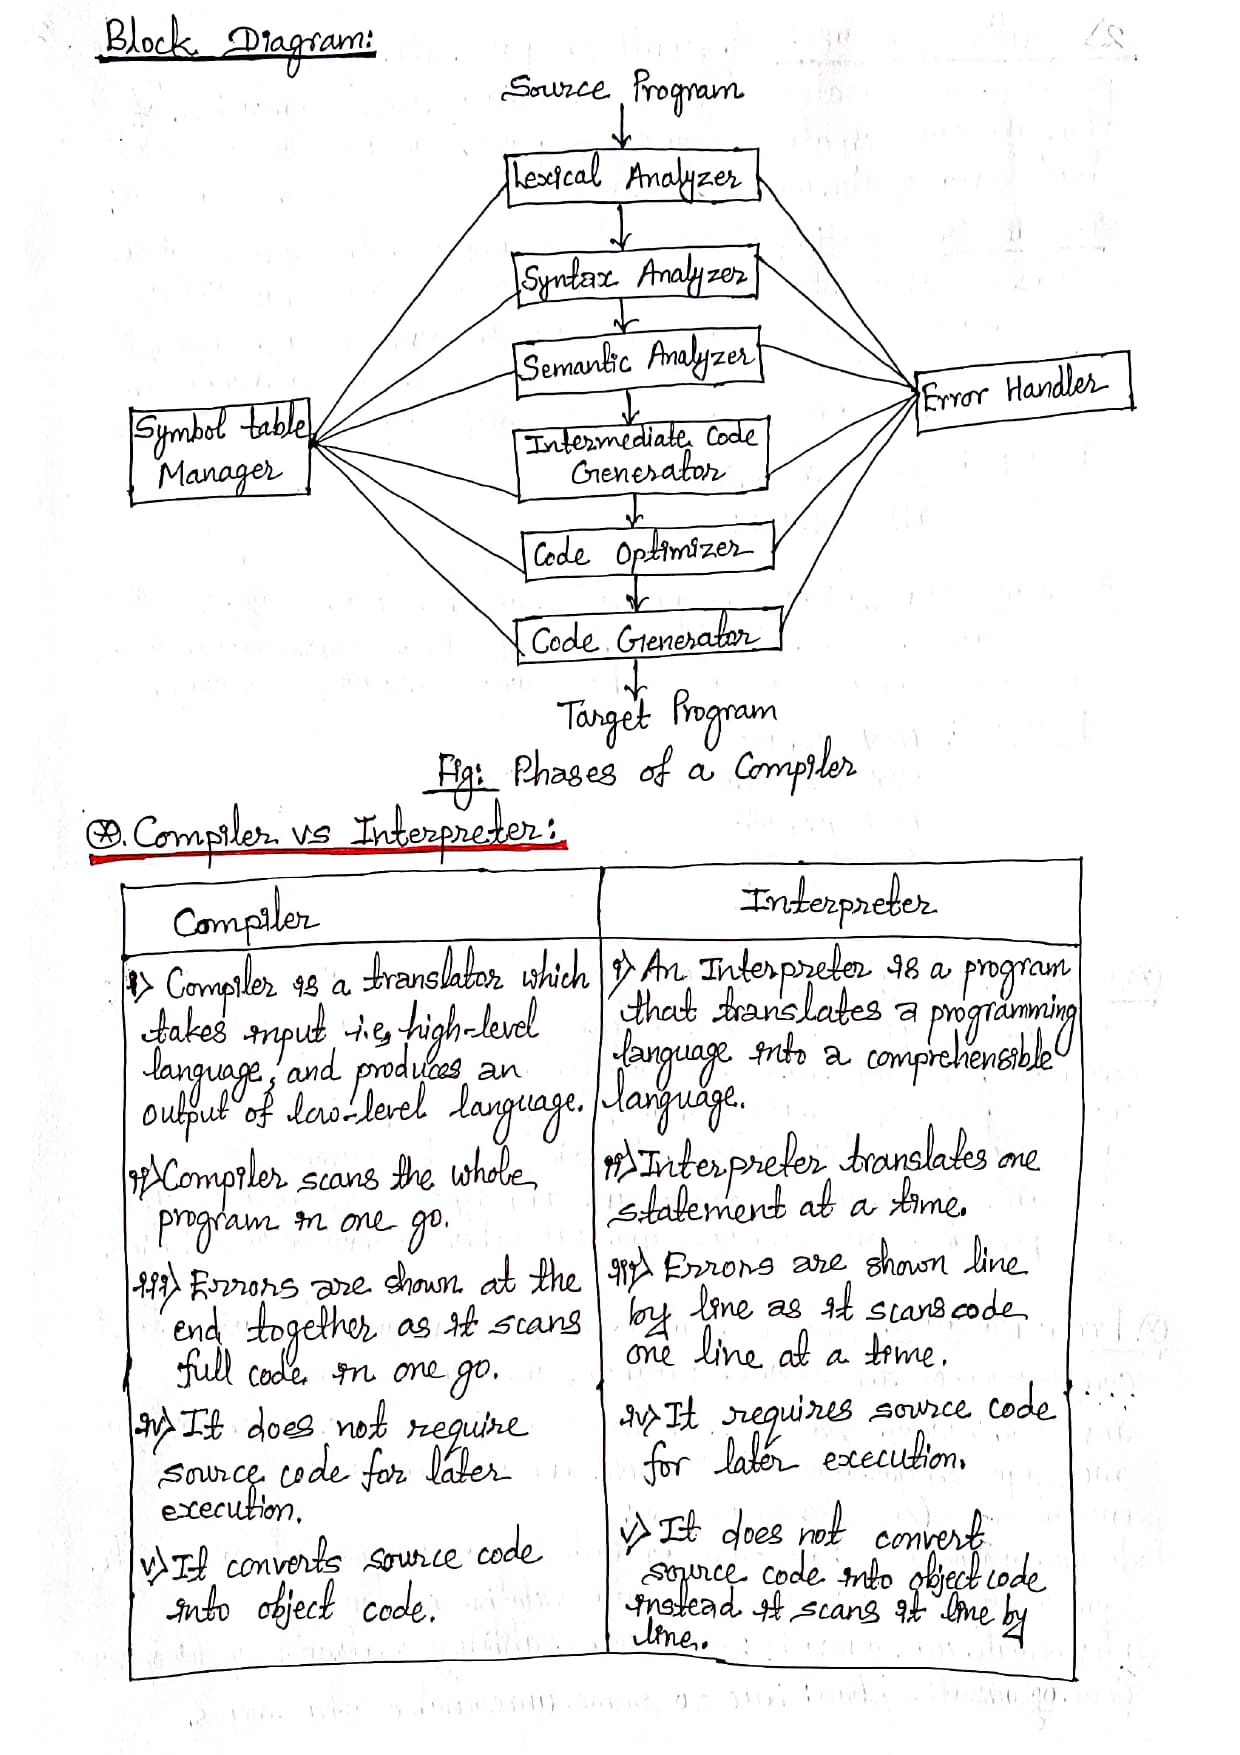 Block Diagram:
Source Program
Lexical Analyzer
Syntax Analyzer
Semantic Analyzer
Error Handler
Symbol table
Manager
Intermediate Code
Generator
Code Optimizer
Code Generator
Target Program
Fig: Phases of a Compiler
Compiler vs Interpreter:
Compiler
i) Compiler is a translator which
takes input i.e, high-level
language, and produces an
output of low-level language.
ii) Compiler scans the whole
program in one go.
iii) Errors are shown at the
end together as it scans
full code in one go.
iv) It does not require
source code for later
execution.
v) It converts source code
into object code.
Interpreter
i) An Interpreter is a program
that translates a programming
language into a comprehensible
language.
ii) Interpreter translates one
statement at a time.
iii) Errors are shown line
by line as it scans code
one line at a time.
iv) It requires source code
for later execution.
v) It does not convert
source code into object code
instead it scans it line by
line.